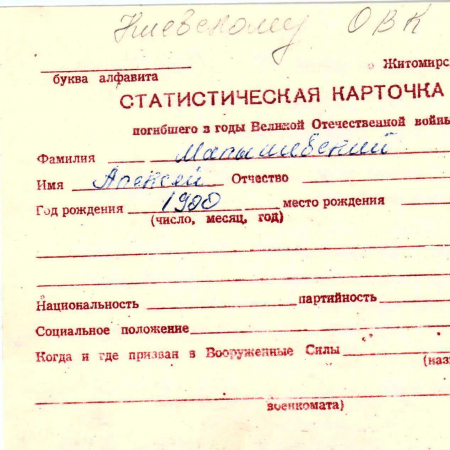 Киевскому ОВК
Житомирс
буква алфавита
СТАТИСТИЧЕСКАЯ КАРТОЧКА
погибшего в годы Великой Отечественной войны
Фамилия Малышевский
Имя Алексей Отчество
Год рождения 1900 место рождения
(число, месяц, год)
Национальность партийность
Социальное положение
Когда и где призван в Вооруженные Силы
(наз
военкомата)